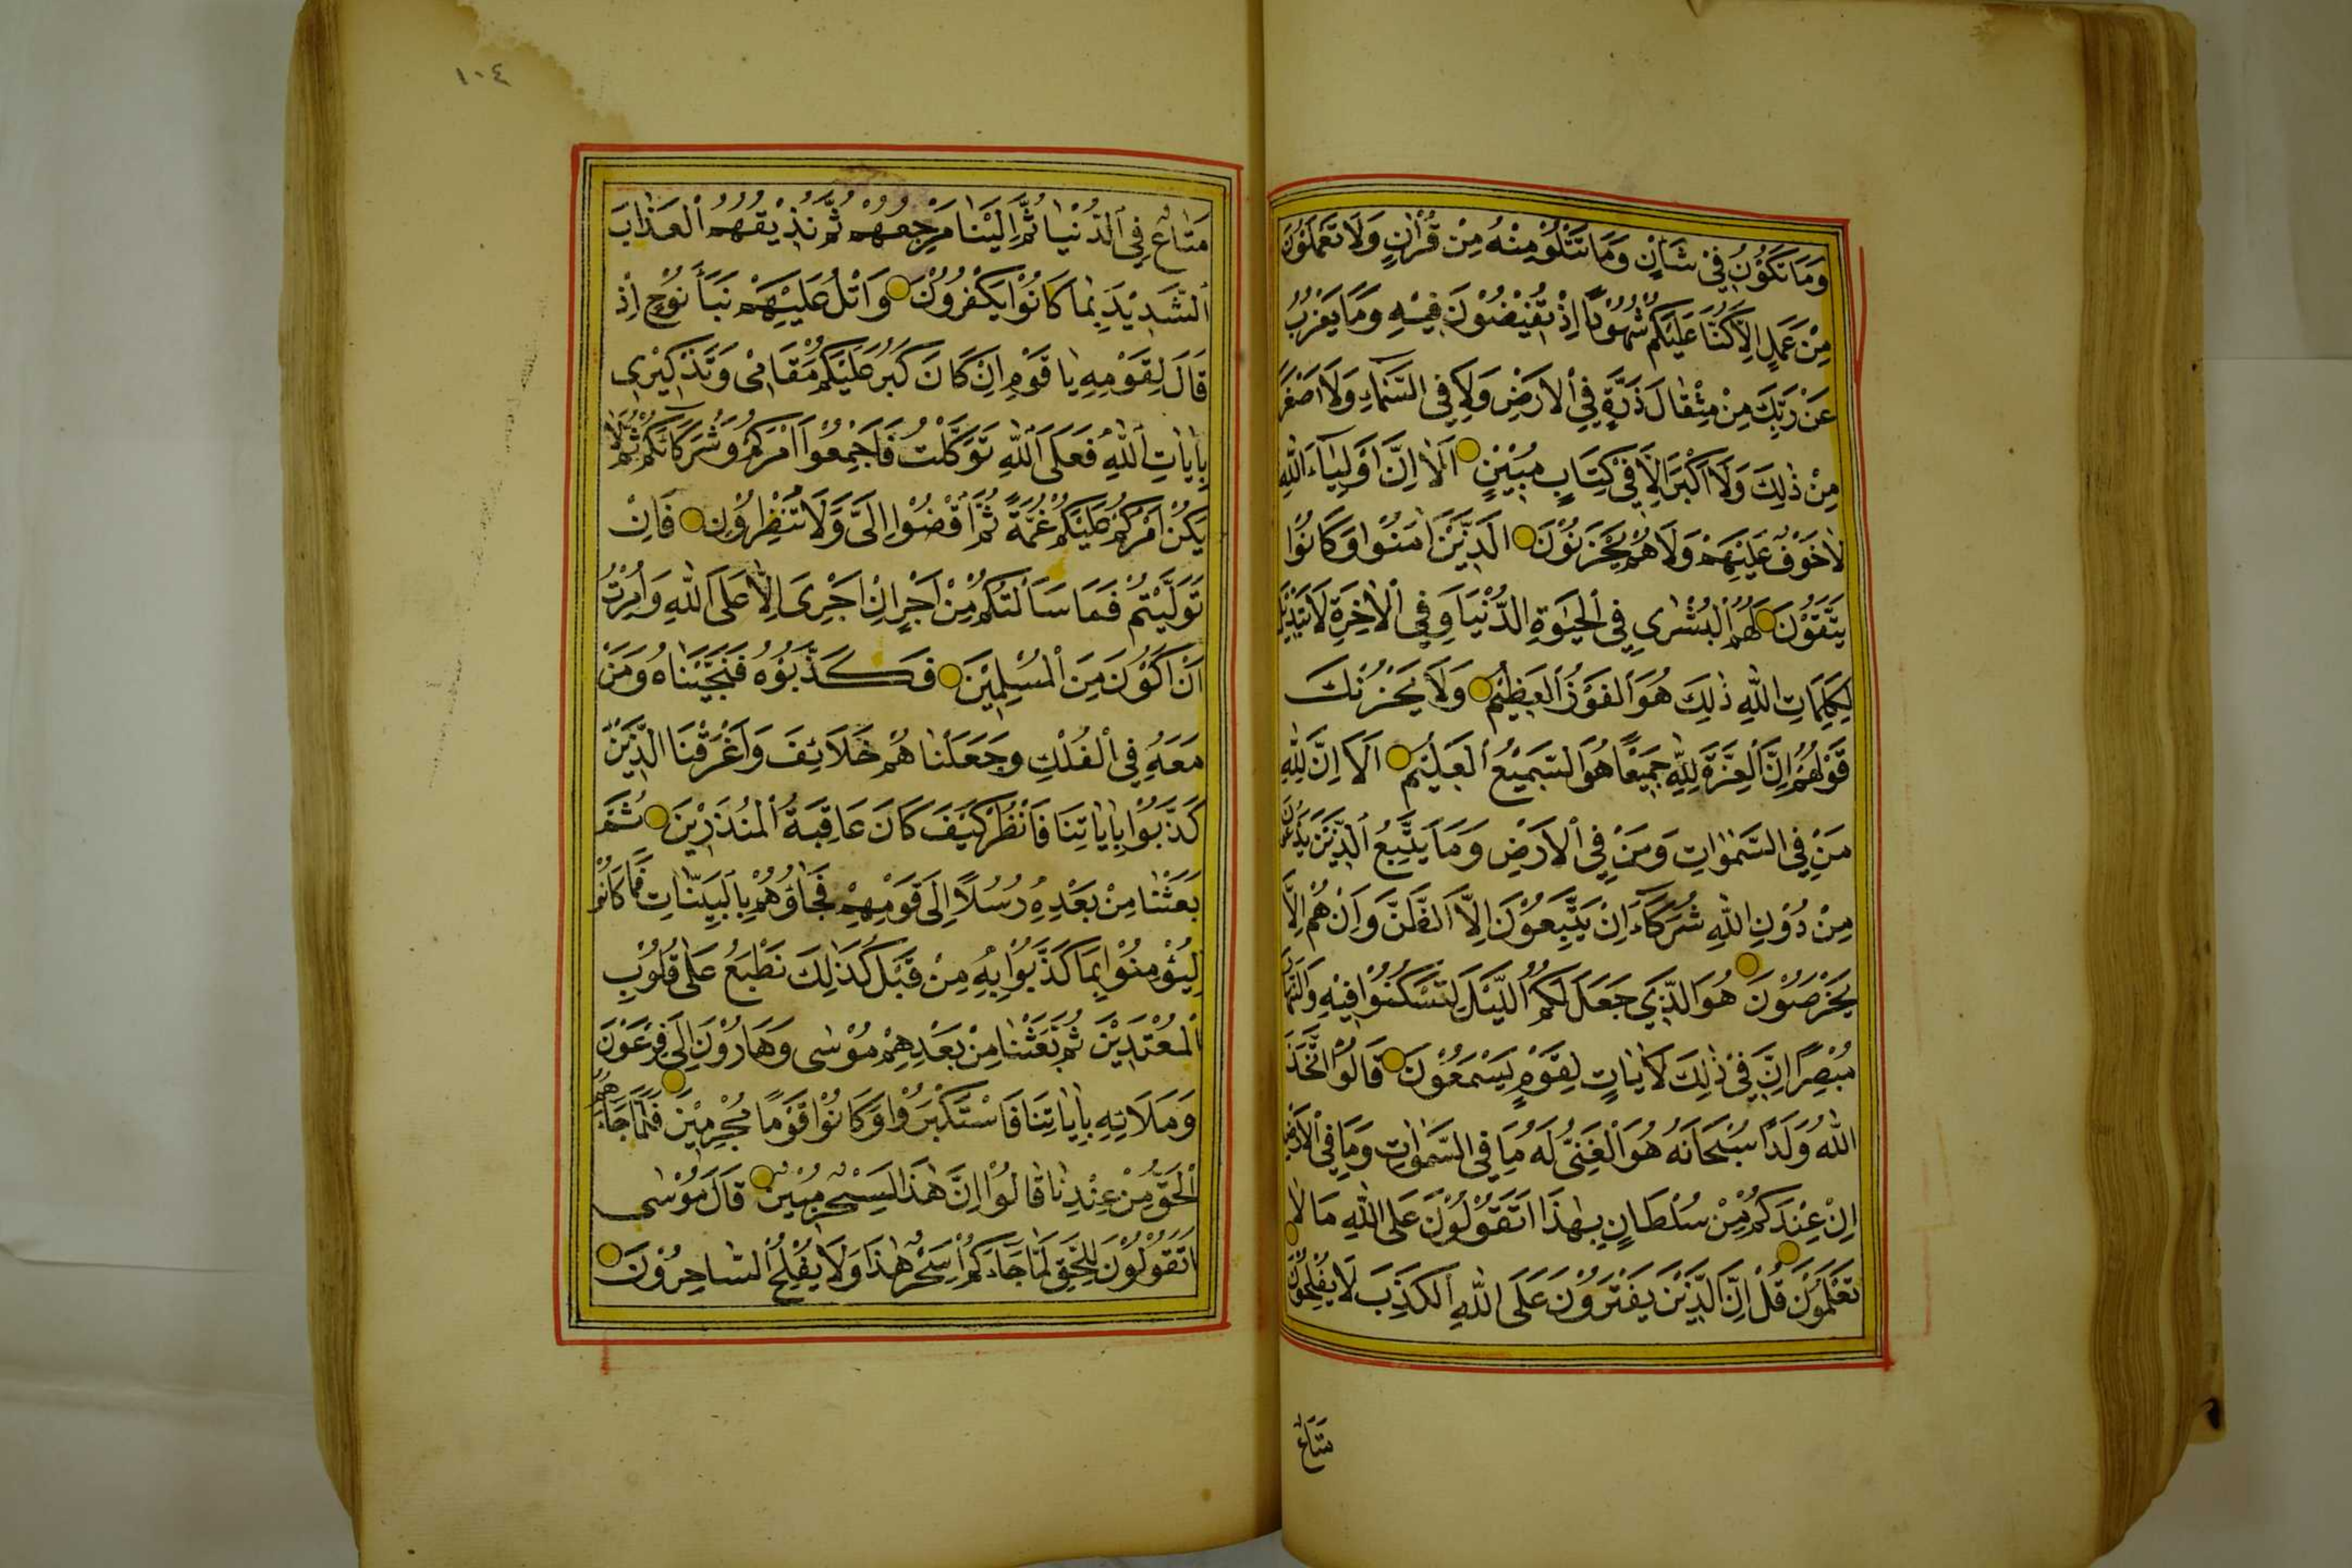 وَمَا تَكُوْنُ فِيْ شَاْنٍ وَمَا تَتْلُوْ مِنْهُ مِنْ قُرْاٰنٍ وَلَا تَعْمَلُوْنَ
مِنْ عَمَلٍ اِلَّا كُنَّا عَلَيْكُمْ شُهُوْدًا اِذْ تُفِيْضُوْنَ فِيْهِ وَمَا يَعْزُبُ
عَنْ رَبِّكَ مِنْ مِثْقَالِ ذَرَّةٍ فِي الْاَرْضِ وَلَا فِي السَّمَآءِ وَلَا اَصْغَرَ
مِنْ ذٰلِكَ وَلَا اَكْبَرَ اِلَّا فِيْ كِتَابٍ مُبِيْنٍ اَلَا اِنَّ اَوْلِيَآءَ اللّٰهِ
لَا خَوْفٌ عَلَيْهِمْ وَلَا هُمْ يَحْزَنُوْنَ الَّذِيْنَ اٰمَنُوْا وَكَانُوْا
يَتَّقُوْنَ لَهُمُ الْبُشْرٰى فِي الْحَيٰوةِ الدُّنْيَا وَفِي الْاٰخِرَةِ لَا تَبْدِيْلَ
لِكَلِمَاتِ اللّٰهِ ذٰلِكَ هُوَ الْفَوْزُ الْعَظِيْمُ وَلَا يَحْزُنْكَ
قَوْلُهُمْ اِنَّ الْعِزَّةَ لِلّٰهِ جَمِيْعًا هُوَ السَّمِيْعُ الْعَلِيْمُ اَلَا اِنَّ لِلّٰهِ
مَنْ فِي السَّمٰوَاتِ وَمَنْ فِي الْاَرْضِ وَمَا يَتَّبِعُ الَّذِيْنَ يَدْعُوْنَ
مِنْ دُوْنِ اللّٰهِ شُرَكَآءَ اِنْ يَتَّبِعُوْنَ اِلَّا الظَّنَّ وَاِنْ هُمْ اِلَّا
يَخْرُصُوْنَ هُوَ الَّذِيْ جَعَلَ لَكُمُ الَّيْلَ لِتَسْكُنُوْا فِيْهِ وَالنَّهَارَ
مُبْصِرًا اِنَّ فِيْ ذٰلِكَ لَاٰيَاتٍ لِقَوْمٍ يَسْمَعُوْنَ قَالُوْا اتَّخَذَ
اللّٰهُ وَلَدًا سُبْحَانَهُ هُوَ الْغَنِيُّ لَهُ مَا فِي السَّمٰوَاتِ وَمَا فِي الْاَرْضِ
اِنْ عِنْدَكُمْ مِنْ سُلْطَانٍ بِهٰذَا اَتَقُوْلُوْنَ عَلَى اللّٰهِ مَا لَا
تَعْلَمُوْنَ قُلْ اِنَّ الَّذِيْنَ يَفْتَرُوْنَ عَلَى اللّٰهِ الْكَذِبَ لَا يُفْلِحُوْنَ
مَتَاعٌ
١٠٤
مَتَاعٌ فِي الدُّنْيَا ثُمَّ اِلَيْنَا مَرْجِعُهُمْ ثُمَّ نُذِيْقُهُمُ الْعَذَابَ
الشَّدِيْدَ بِمَا كَانُوْا يَكْفُرُوْنَ وَاتْلُ عَلَيْهِمْ نَبَاَ نُوْحٍ اِذْ
قَالَ لِقَوْمِهِ يَا قَوْمِ اِنْ كَانَ كَبُرَ عَلَيْكُمْ مَقَامِيْ وَتَذْكِيْرِيْ
بِاٰيَاتِ اللّٰهِ فَعَلَى اللّٰهِ تَوَكَّلْتُ فَاَجْمِعُوْا اَمْرَكُمْ وَشُرَكَآئَكُمْ ثُمَّ لَا
يَكُنْ اَمْرُكُمْ عَلَيْكُمْ غُمَّةً ثُمَّ اقْضُوْا اِلَيَّ وَلَا تُنْظِرُوْنِ فَاِنْ
تَوَلَّيْتُمْ فَمَا سَاَلْتُكُمْ مِنْ اَجْرٍ اِنْ اَجْرِيَ اِلَّا عَلَى اللّٰهِ وَاُمِرْتُ
اَنْ اَكُوْنَ مِنَ الْمُسْلِمِيْنَ فَكَذَّبُوْهُ فَنَجَّيْنَاهُ وَمَنْ
مَعَهُ فِي الْفُلْكِ وَجَعَلْنَاهُمْ خَلَائِفَ وَاَغْرَقْنَا الَّذِيْنَ
كَذَّبُوْا بِاٰيَاتِنَا فَانْظُرْ كَيْفَ كَانَ عَاقِبَةُ الْمُنْذَرِيْنَ ثُمَّ
بَعَثْنَا مِنْ بَعْدِهِ رُسُلًا اِلَى قَوْمِهِمْ فَجَاؤُهُمْ بِالْبَيِّنَاتِ فَمَا كَانُوْا
لِيُؤْمِنُوْا بِمَا كَذَّبُوْا بِهِ مِنْ قَبْلُ كَذٰلِكَ نَطْبَعُ عَلٰى قُلُوْبِ
الْمُعْتَدِيْنَ ثُمَّ بَعَثْنَا مِنْ بَعْدِهِمْ مُوْسٰى وَهَارُوْنَ اِلَى فِرْعَوْنَ
وَمَلَائِهِ بِاٰيَاتِنَا فَاسْتَكْبَرُوْا وَكَانُوْا قَوْمًا مُجْرِمِيْنَ فَلَمَّا جَاءَهُمُ
الْحَقُّ مِنْ عِنْدِنَا قَالُوْا اِنَّ هٰذَا لَسِحْرٌ مُبِيْنٌ قَالَ مُوْسٰى
اَتَقُوْلُوْنَ لِلْحَقِّ لَمَّا جَاءَكُمْ اَسِحْرٌ هٰذَا وَلَا يُفْلِحُ السَّاحِرُوْنَ